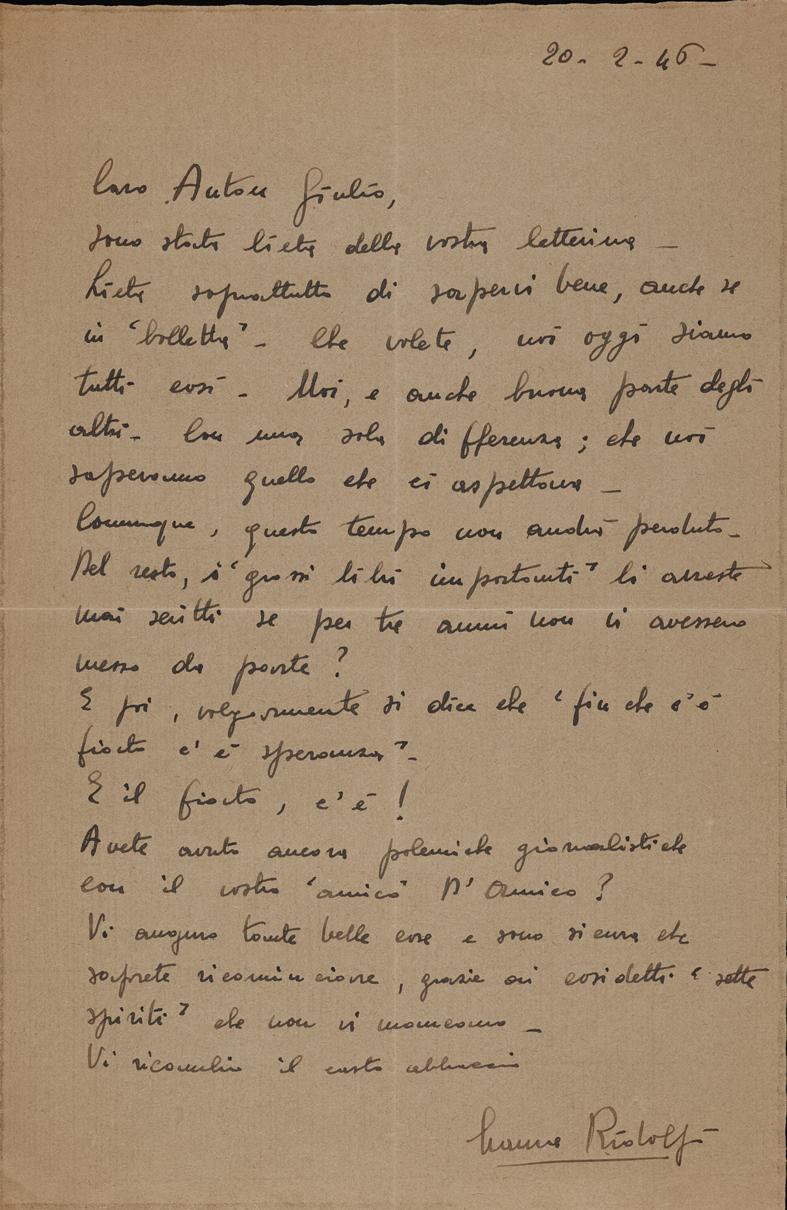 20- 2- 46-
Caro Anton Giulio,
sono stata lieta della vostra letterina -
Lieta soprattutto di sapervi bene, anche se
in "bolletta" - Che volete, noi oggi siamo
tutti così - Noi, e anche buona parte degli
altri - Con una sola differenza; che noi
sapevamo quello che ci aspettava -
Comunque, questo tempo non andrà perduto -
Del resto, i "grossi libri importanti" li avreste
mai scritti se per tre anni non vi avessero
messo da parte?
E poi, volgarmente si dice che "fin che c'è
fiato c'è speranza" -
E il fiato, c'è!
Avete avuto ancora polemiche giornalistiche
con il vostro "amico" D'Amico?
Vi auguro tante belle cose e sono sicura che
saprete ricominciare, grazie ai cosidetti "sette
spiriti" che non vi mancano -
Vi ricambio il casto abbraccio
Ridolfi